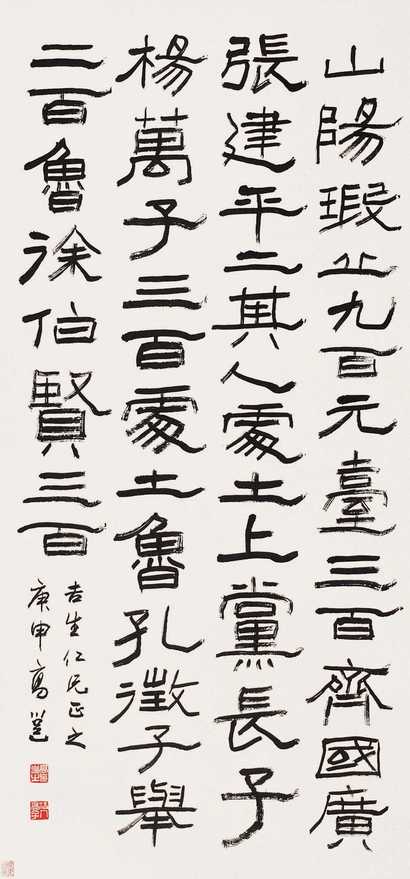 山陽瑕丘九百元臺三百齊國廣
張建平二其人處士上黨長子
楊萬子三百處士魯孔徵子舉
二百魯徐伯賢三百
吉生仁兄正之
庚申高邕